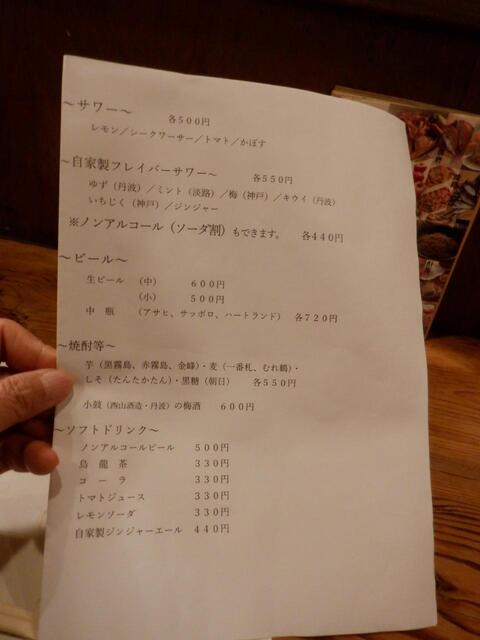 ～サワー～
各５００円
レモン／シークワーサー／トマト／かぼす
～自家製フレイバーサワー～ 各５５０円
ゆず（丹波）／ミント（淡路）／梅（神戸）／キウイ（丹波）
いちじく（神戸）／ジンジャー
※ノンアルコール（ソーダ割）もできます。 各４４０円
～ビール～
生ビール （中） ６００円
（小） ５００円
中 瓶 （アサヒ、サッポロ、ハートランド） 各７２０円
～焼酎等～
芋（黒霧島、赤霧島、金峰）・麦（一番札、むれ鶴）・
しそ（たんたかたん）・黒糖（朝日） 各５５０円
小鼓（西山酒造・丹波）の梅酒 ６００円
～ソフトドリンク～
ノンアルコールビール ５００円
烏 龍 茶 ３３０円
コ ー ラ ３３０円
トマトジュース ３３０円
レモンソーダ ３３０円
自家製ジンジャーエール ４４０円